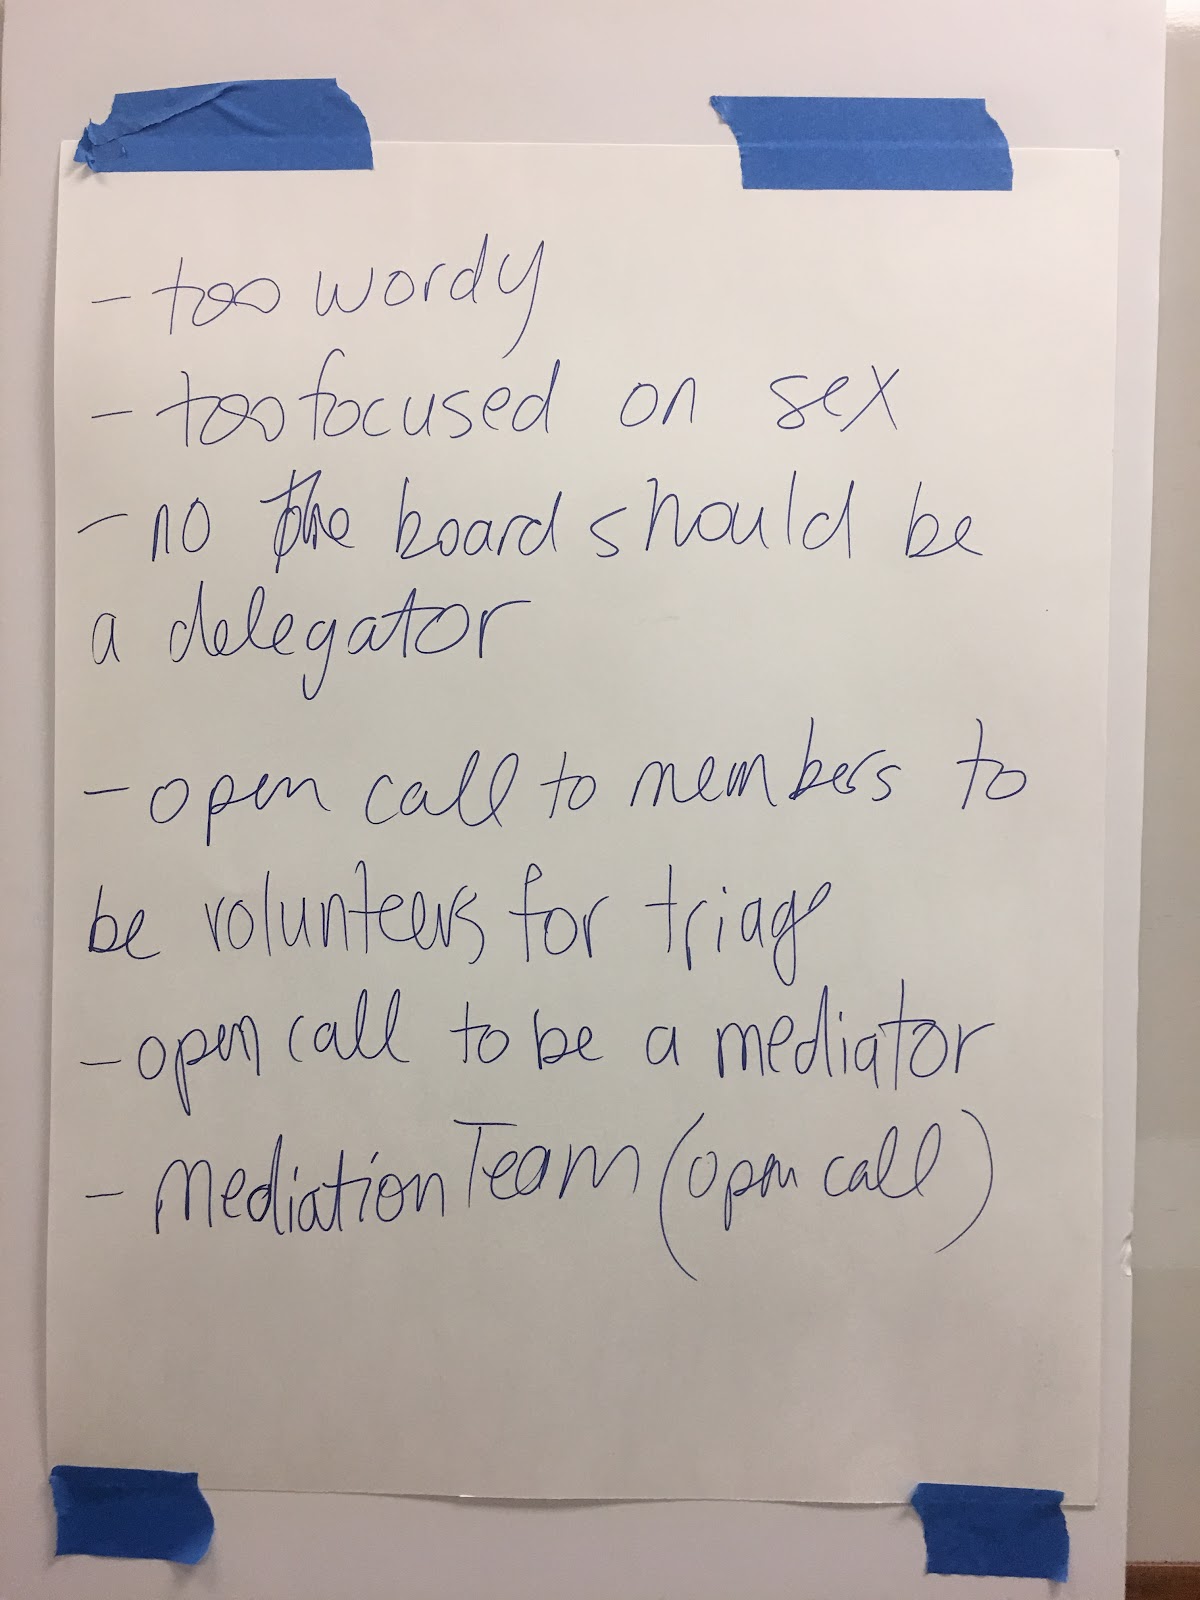 - too wordy
- too focused on sex
- no the board should be
a delegator
- open call to members to
be volunteers for triage
- open call to be a mediator
- Mediation Team (open call)